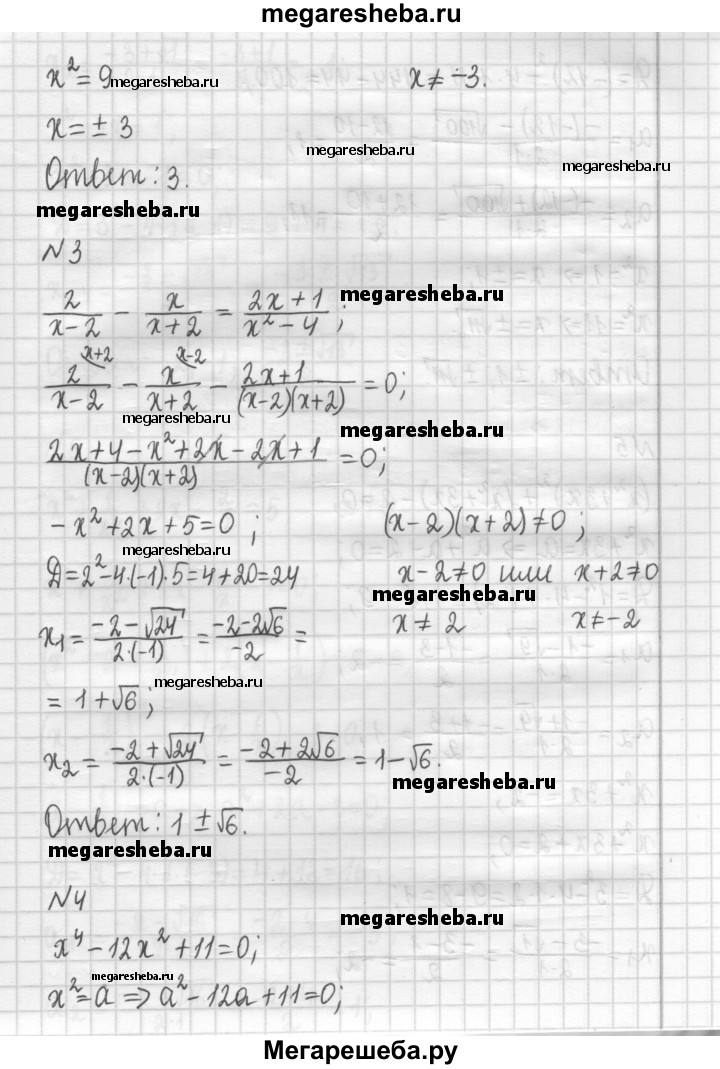 megaresheba.ru
x² = 9 megaresheba.ru x ≠ -3.
x = ± 3
megaresheba.ru
Ответ: 3. megaresheba.ru
megaresheba.ru
N 3
2/(x-2) - x/(x+2) = (2x+1)/(x²-4); megaresheba.ru
2/(x-2) (x+2 - x/(x+2) (x-2 - (2x+1)/((x-2)(x+2)) = 0;
megaresheba.ru
megaresheba.ru
(2x+4-x²+2x-2x+1)/((x-2)(x+2)) = 0;
-x²+2x+5=0; (x-2)(x+2)≠0;
megaresheba.ru
Д=2²-4·(-1)·5=4+20=24 x-2≠0 или x+2≠0
megaresheba.ru
x₁ = (-2-√24)/(2·(-1)) = (-2-2√6)/(-2) = x≠2 x≠-2
= 1+√6; megaresheba.ru
x₂ = (-2+√24)/(2·(-1)) = (-2+2√6)/(-2) = 1-√6.
megaresheba.ru
Ответ: 1 ± √6.
megaresheba.ru
N4
megaresheba.ru
x⁴-12x²+11=0;
megaresheba.ru
x²=a ⇒ a²-12a+11=0;
Мегарешеба.ру